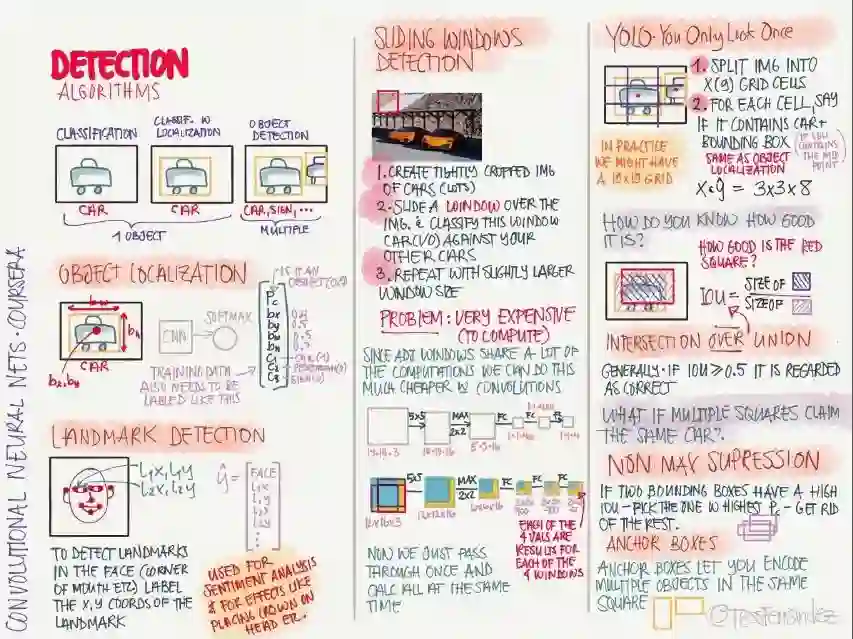 CONVOLUTIONAL NEURAL NETS · COURSERA
DETECTION
ALGORITHMS
CLASSIFICATION
CLASSIF. W
LOCALIZATION
OBJECT
DETECTION
CAR
CAR
CAR, SIGN, ...
1 OBJECT
MULTIPLE
OBJECT LOCALIZATION
IS IT AN
OBJECT
bw
bh
bx, by
CAR
CNN
SOFTMAX
Pc
bx
by
bh
C1
C2
C3
TRAINING DATA
ALSO NEEDS TO BE
LABLED LIKE THIS
LANDMARK DETECTION
L1X, L1Y
L2X, L2Y
ŷ =
FACE
L1X
L1Y
L2X
L2Y
TO DETECT LANDMARKS
IN THE FACE (CORNER
OF MOUTH ETC) LABEL
THE X,Y COORDS OF THE
LANDMARK
USED FOR
SENTIMENT ANALYSIS
& FOR EFFECTS LIKE
PLACING CROWN ON
HEAD
SLIDING WINDOWS
DETECTION
1. CREATE TIGHTLY CROPPED IMG
OF CARS (LOTS)
2. SLIDE A WINDOW OVER THE
IMG. & CLASSIFY THIS WINDOW
CAR(1/0) AGAINST YOUR
OTHER CARS
3. REPEAT WITH SLIGHTLY LARGER
WINDOW SIZE
PROBLEM: VERY EXPENSIVE
(TO COMPUTE)
SINCE ADJ WINDOWS SHARE A LOT OF
THE COMPUTATIONS WE CAN DO THIS
MUCH CHEAPER W CONVOLUTIONS
5x5
MAX
2x2
FC
FC
5x5
MAX
2x2
FC
FC
FC
EACH OF THE
4 VALS ARE
RESULTS FOR
EACH OF THE
4 WINDOWS
NOW WE JUST PASS
THROUGH ONCE AND
CALC ALL AT THE SAME
TIME
YOLO · You Only Look Once
1. SPLIT IMG INTO
X(9) GRID CELLS
2. FOR EACH CELL, SAY
IF IT CONTAINS CAR+
BOUNDING BOX
CONTAINS
THE MID
POINT
SAME AS OBJECT
LOCALIZATION
IN PRACTICE
WE MIGHT HAVE
A 19x19 GRID
= 3x3x8
HOW DO YOU KNOW HOW GOOD
IT IS?
HOW GOOD IS THE RED
SQUARE?
IOU =
SIZE OF
SIZE OF
INTERSECTION OVER UNION
GENERALLY · IF IOU ≥ 0.5 IT IS REGARDED
AS CORRECT
WHAT IF MULTIPLE SQUARES CLAIM
THE SAME CAR?
NON MAX SUPRESSION
IF TWO BOUNDING BOXES HAVE A HIGH
IOU - PICK THE ONE W HIGHEST Pc - GET RID
OF THE REST.
ANCHOR BOXES
ANCHOR BOXES LET YOU ENCODE
MULTIPLE OBJECTS IN THE SAME
SQUARE